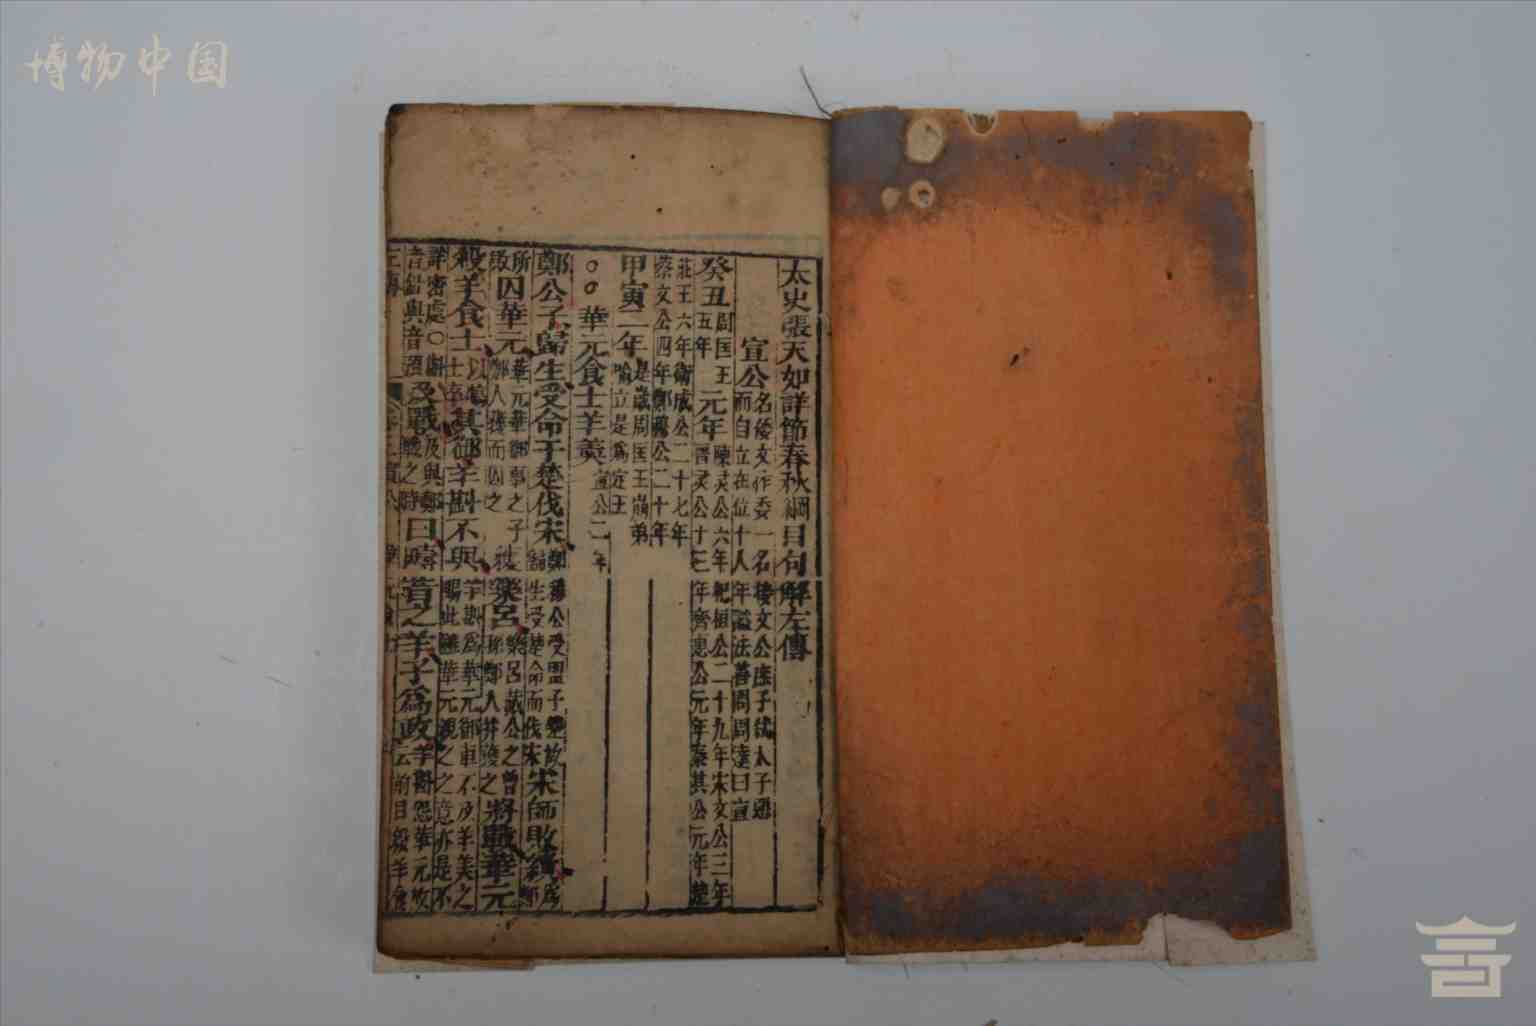 博物中国
太史張天如詳節春秋綱目句解左傳
宣公 名倭文作委一名接文公庶子弑太子惡
而自立在位十八年謚法善問周達曰宣
癸丑 周匡王五年 元年 陳灵公六年杞桓公二十九年宋文公三年
晋灵公十三年齊惠公元年秦共公元年楚
莊王六年衛成公二十七年
蔡文公四年鄭穆公二十年
甲寅二年 是歲周匡王崩弟
喻立是爲定王
○○華元食士羊羹 宣公二年
鄭公子歸生受命于楚伐宋 鄭穆公受盟于楚故歸生受楚命而伐宋 宋師敗績 爲鄭
所敗 囚華元 華元華御事之子 鄭人獲而囚之 獲樂呂 樂呂戴公之曾孫鄭人并獲之 將戰華元
殺羊食士 以羊 士卒 其御羊斟不與 羊斟爲華元御車不及羊羹之賜此雖華元親之之意亦是不
詳密處○斟音針與音預 及戰 及與鄭戰之時 曰疇昔之羊子爲政 羊斟怨華元故云前日殺羊食
左傳 宣公